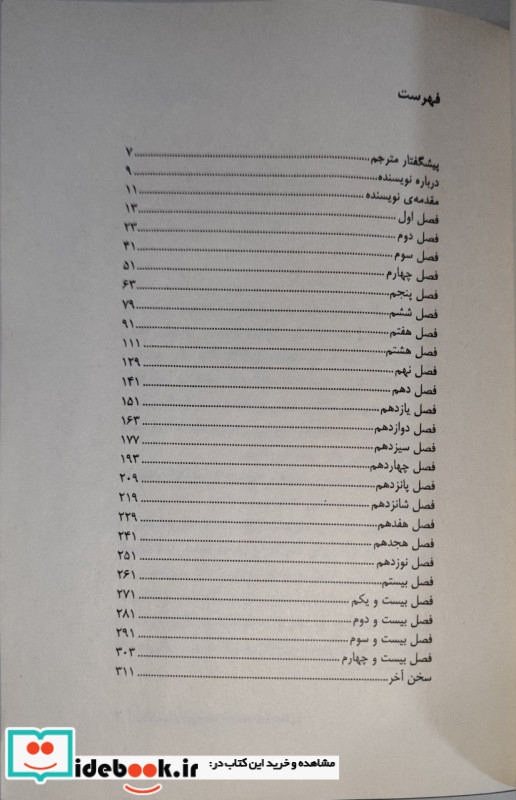 فهرست
پیشگفتار مترجم ........ ۷
درباره نویسنده ........ ۹
مقدمه‌ی نویسنده ........ ۱۱
فصل اول ........ ۱۳
فصل دوم ........ ۲۳
فصل سوم ........ ۴۱
فصل چهارم ........ ۵۱
فصل پنجم ........ ۶۳
فصل ششم ........ ۷۹
فصل هفتم ........ ۹۱
فصل هشتم ........ ۱۱۱
فصل نهم ........ ۱۲۹
فصل دهم ........ ۱۴۱
فصل یازدهم ........ ۱۵۱
فصل دوازدهم ........ ۱۶۳
فصل سیزدهم ........ ۱۷۷
فصل چهاردهم ........ ۱۹۳
فصل پانزدهم ........ ۲۰۹
فصل شانزدهم ........ ۲۱۹
فصل هفدهم ........ ۲۲۹
فصل هجدهم ........ ۲۴۱
فصل نوزدهم ........ ۲۵۱
فصل بیستم ........ ۲۶۱
فصل بیست و یکم ........ ۲۷۱
فصل بیست و دوم ........ ۲۸۱
فصل بیست و سوم ........ ۲۹۱
فصل بیست و چهارم ........ ۳۰۳
سخن آخر ........ ۳۱۱
مشاهده و خرید این کتاب در:
idebook.ir